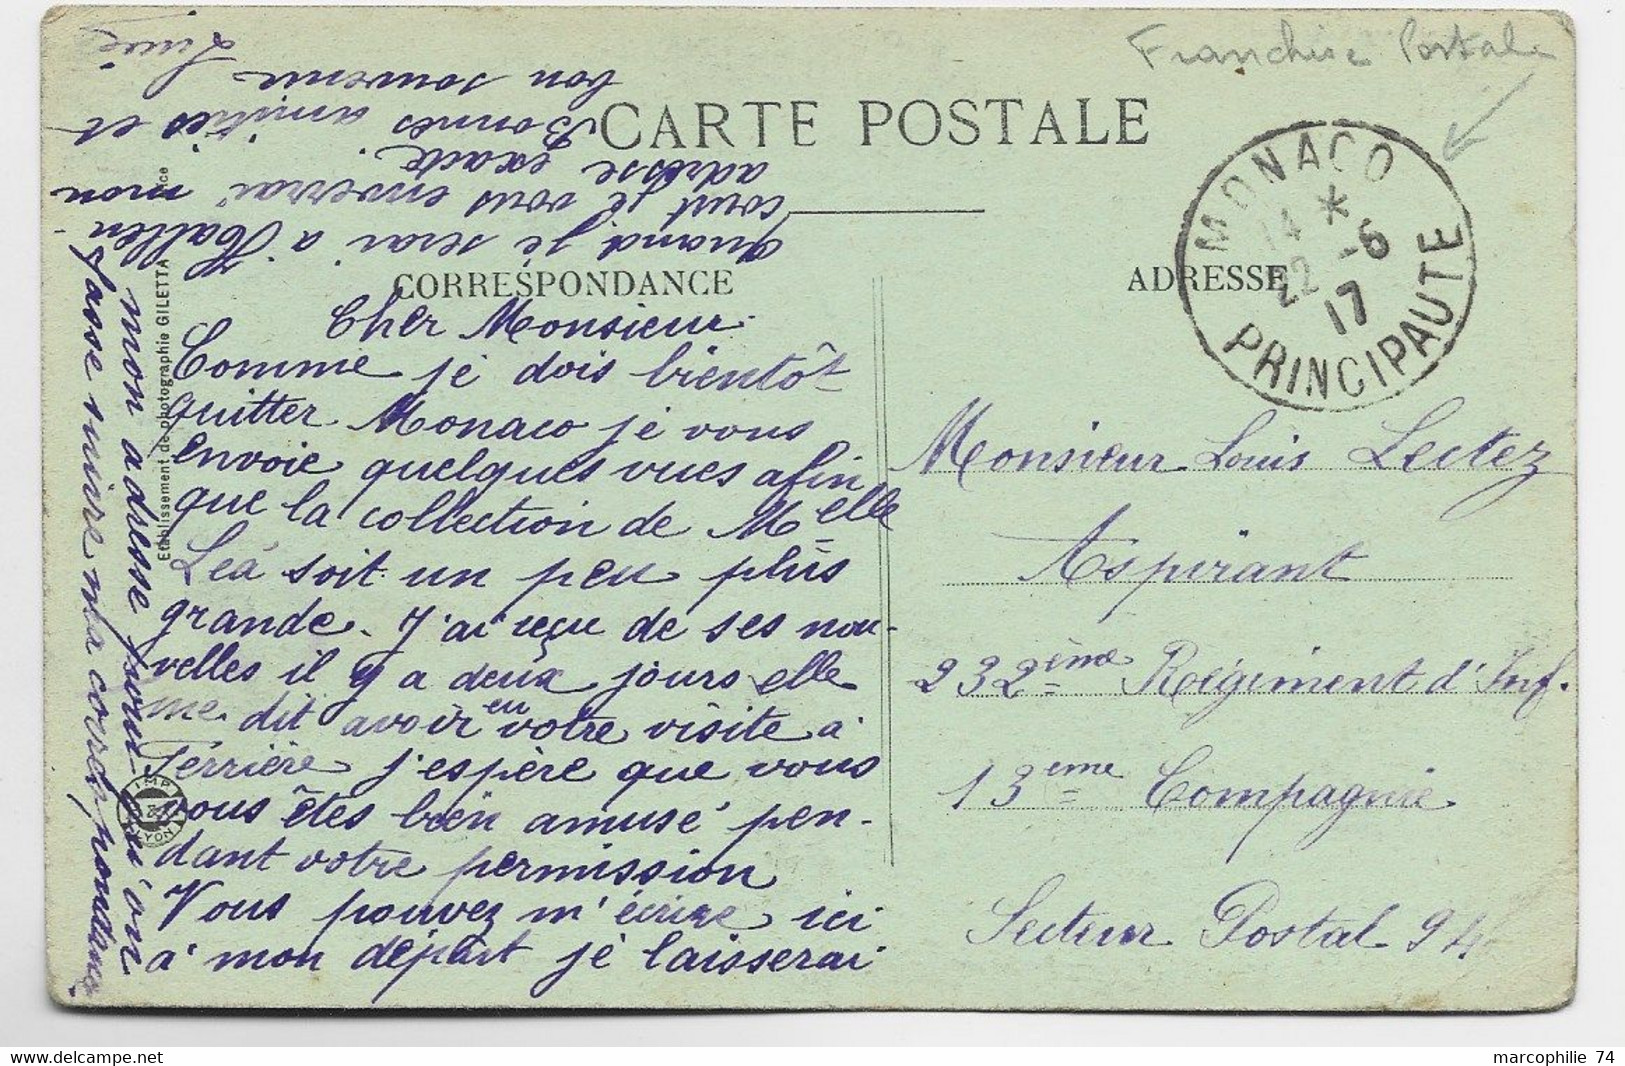 Franchise Postale
CARTE POSTALE
MONACO
14 *
22 -6
17
PRINCIPAUTE
CORRESPONDANCE
ADRESSE
Cher Monsieur
Comme je dois bientôt
quitter Monaco je vous
envoie quelques vues afin
que la collection de Melle
Léa soit un peu plus
grande. J'ai reçu de ses nou-
velles il y a deux jours elle
me dit avoir eu votre visite à
Ferrière j'espère que vous
vous êtes bien amusé pen-
dant votre permission
Vous pouvez m'écrire ici
à mon départ je laisserai
mon adresse pour qu'on
fasse suivre ma correspondance
Quand je serai à
court je vous enverrai mon
adresse exacte.
Bonnes amitiés et
bon souvenir
Monsieur Louis Lectez
Aspirant
232ème Régiment d'Inf.
13ème Compagnie
Secteur Postal 94
Etablissement de photographie GILETTA
marcophilie 74